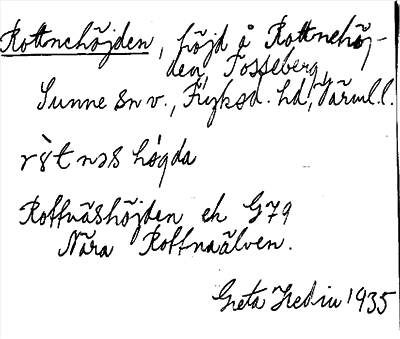 Rottnehöjden, höjd å Rottnehöj-
den, Tosseberg,
Sunne sn v., Fryksd. hd, Värml.l.
rˋɔt nəs hǫ́gda
Rottnäshöjden ek G79
Nära Rottnaälven.
Greta Hedin 1935